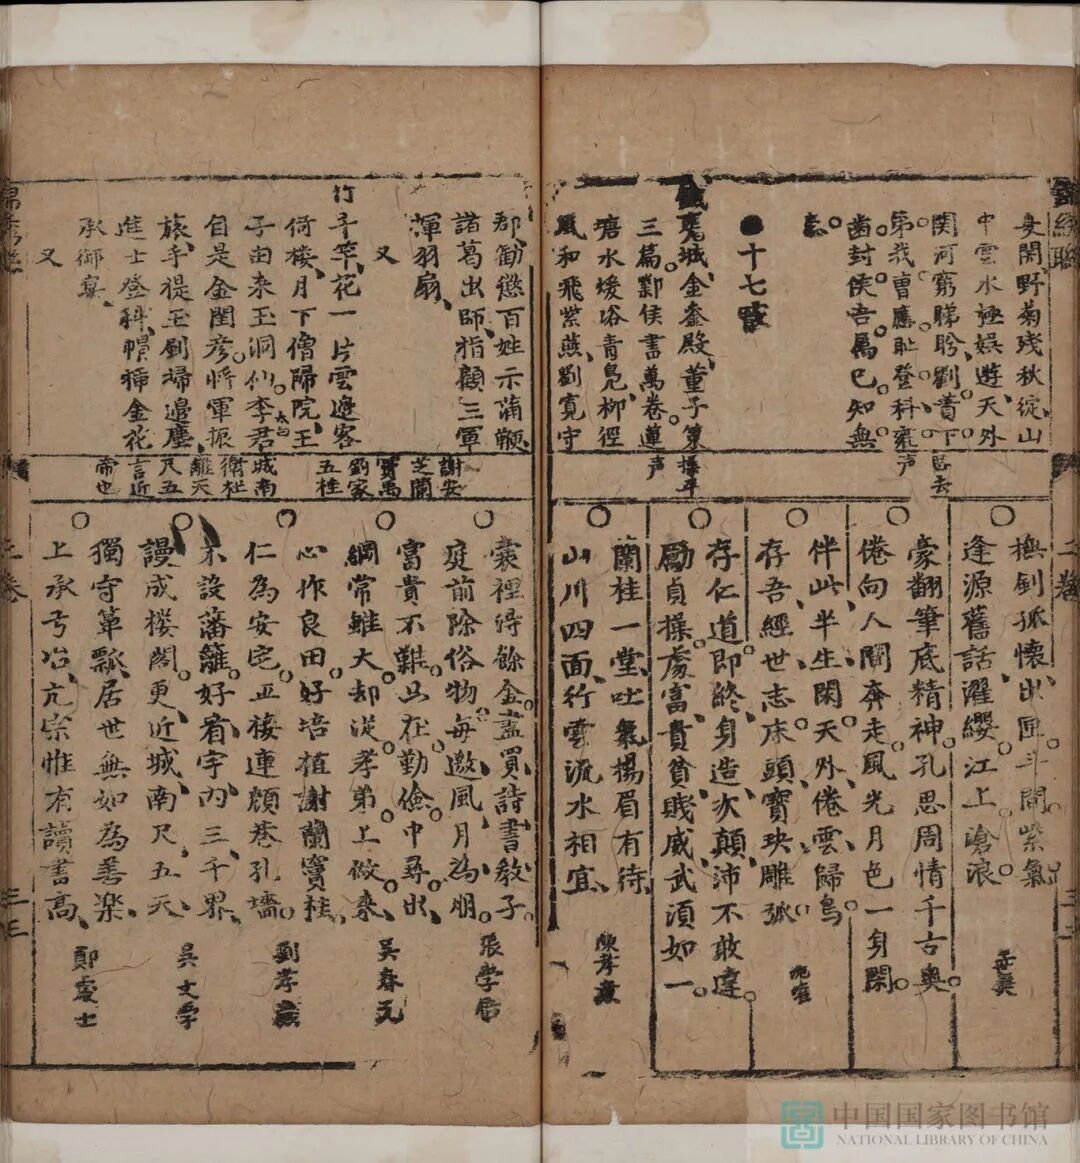 史閑野菊殘秋綻山
中雲水極娛遊天外
関河窮睇盻劉蕡下
第我曹應耻登科雍
齒封侯吾屬已知無
恙
●十七霰
巍巍城金鑾殿董子策
三篇鄴侯書萬卷蓮
塘水煖浴青鳧柳徑
風和飛紫燕劉寬守
撫劍孤懷出匣斗間紫氣
逢源舊話濯纓江上滄浪
豪翻筆底精神孔思周情千古奧
倦向人間奔走風光月色一身閑
伴此半生閑天外倦雲歸鳥
存吾經世志床頭寶玦雕弧
存仁道即終身造次顛沛不敢違
勵貞操處富貴貧賤威武須如一
蘭桂一堂吐氣揚眉有待
山川四面行雲流水相宜
陳孝彥
郡勸懲百姓示蒲鞭
諸葛出師指顧三軍
渾羽扇
又
竹千竿花一片雲邀客
倚樓月下僧歸院王
子由来玉洞仙李君
自是金閨彥將軍振
旅手提玉劍埽邉塵
進士登科帽插金花
承御宴
又
謝安
芝蘭
竇禹
劉家
五桂
城南
衛杜
離天
尺五
言近
帝也
囊裡得餘金盡買詩書教子
庭前除俗物每邀風月為朋
富貴不難只在勤儉中尋出
綱常雖大却従孝弟上做来
心作良田好培植謝蘭竇桂
仁為安宅正接連顔巷孔墻
不設藩籬好看宇内三千界
謾成楼閣更近城南尺五天
獨守箪瓢居世無如為善楽
上承弓冶亢宗惟有讀書高
張學信
吴春元
劉孝彥
吴文學
鄭處士
二卷
中国国家图书馆
NATIONAL LIBRARY OF CHINA